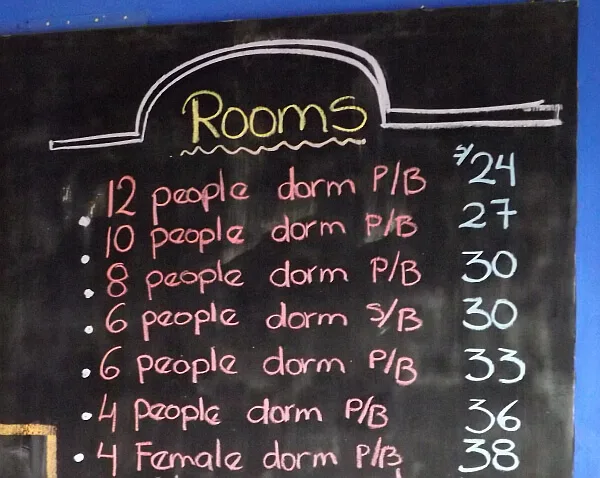 Rooms
12 people dorm P/B s/24
10 people dorm P/B 27
8 people dorm P/B 30
6 people dorm S/B 30
6 people dorm P/B 33
4 people dorm P/B 36
4 Female dorm P/B 38